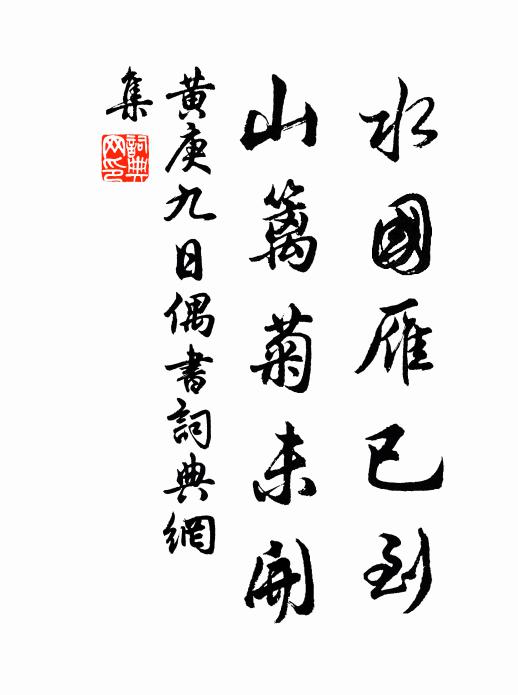 水國雁已到
山籬菊未開
黃庚九日偶書詞典網
集
詞典
网印